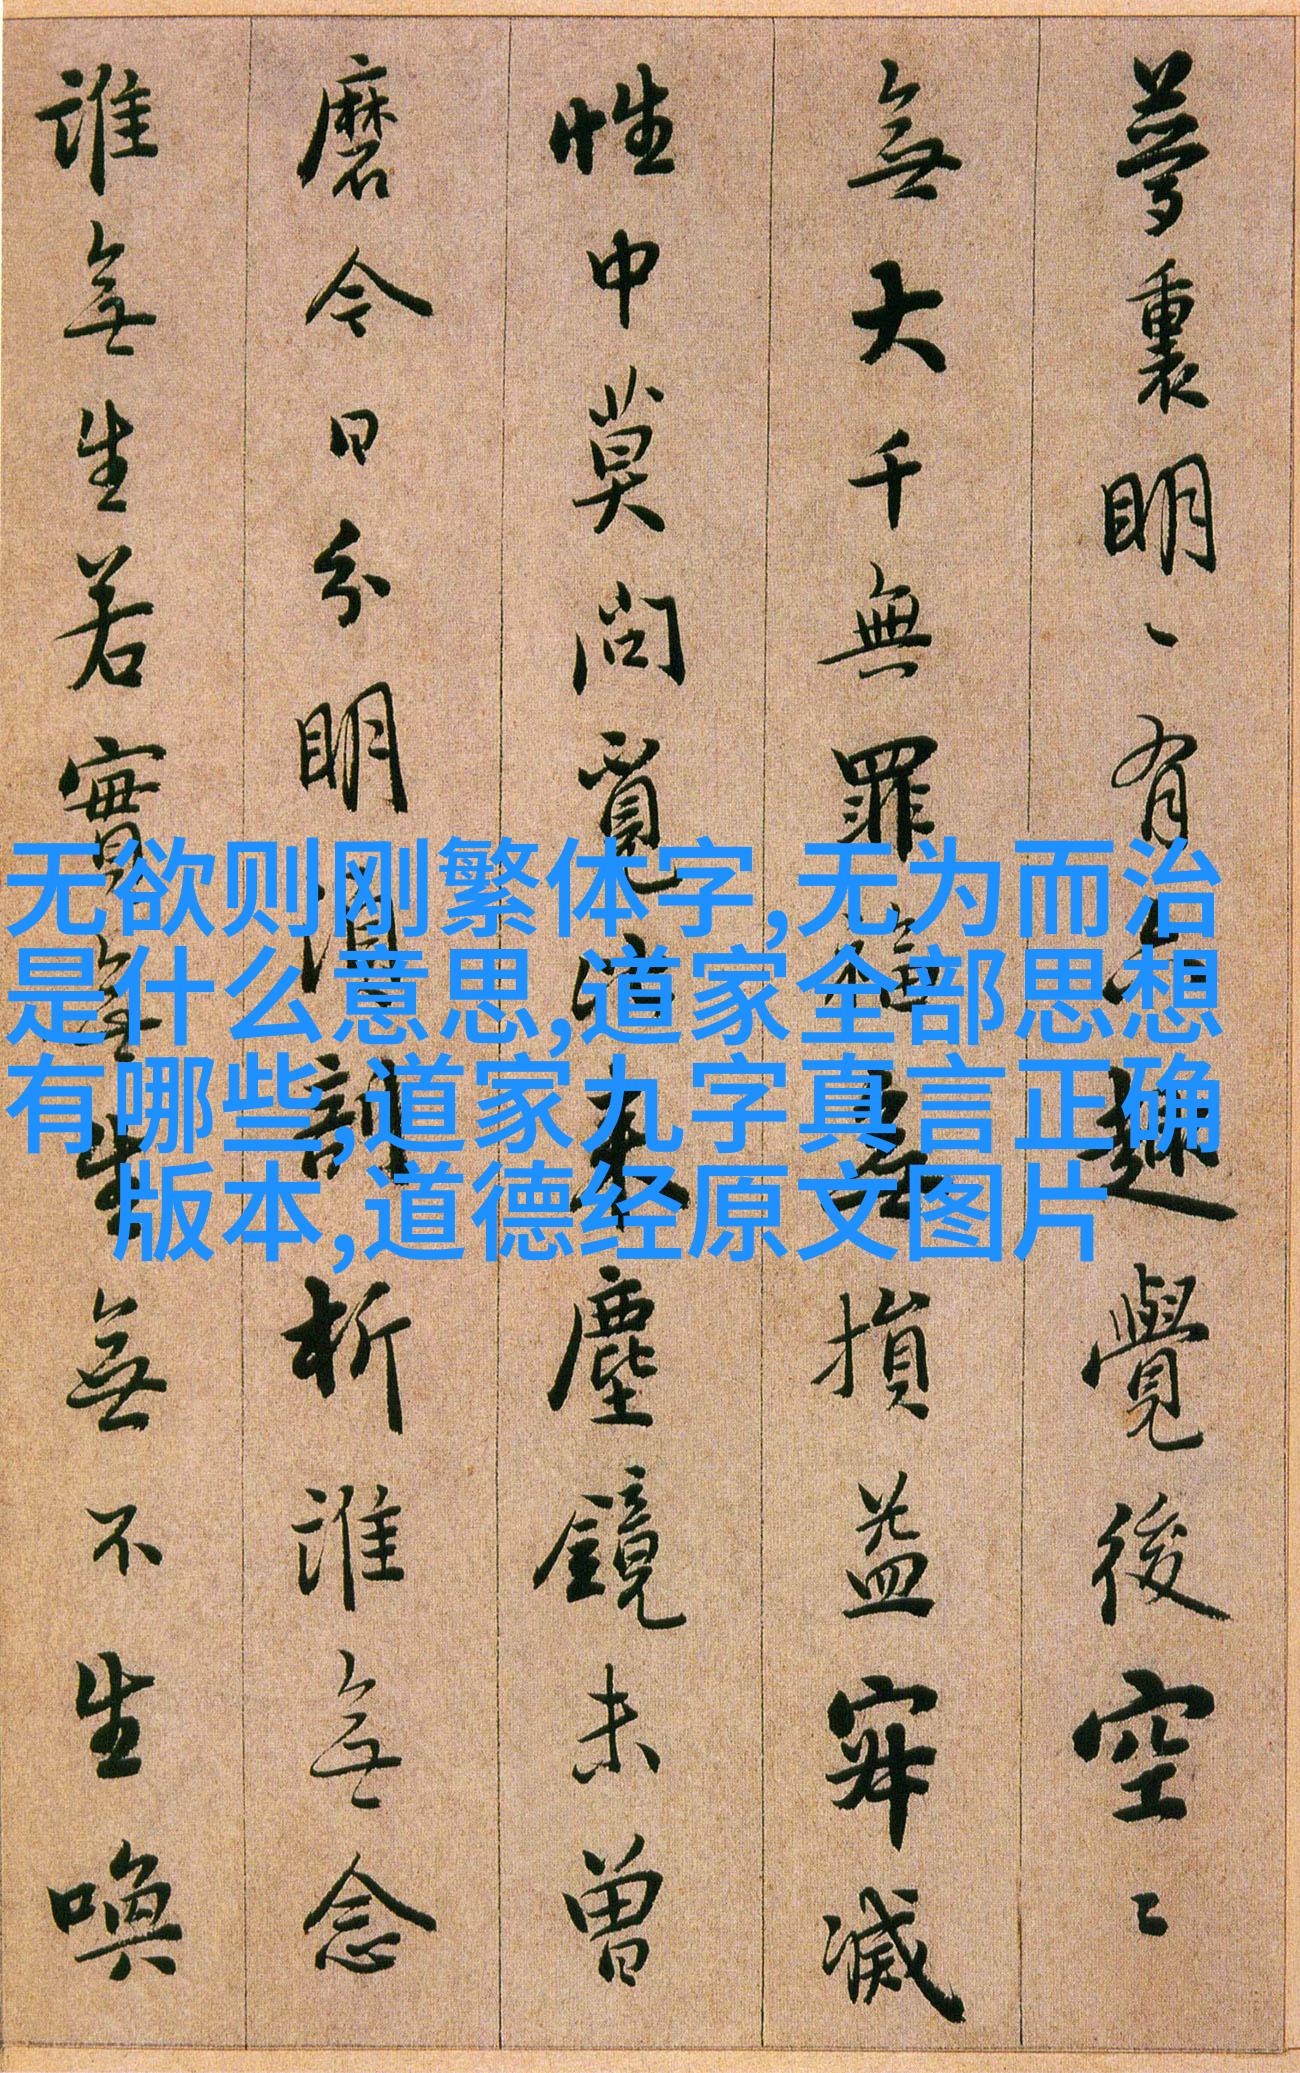 夢裏明〻有六趣覺後空〻
無大千無罪福無損益寂滅
性中莫問覓來塵鏡未曾
磨今日分明須剖析誰無念
誰無生若實無生無不生喚
无欲则刚繁体字,无为而治
是什么意思,道家全部思想
有哪些,道家九字真言正确
版本,道德经原文图片